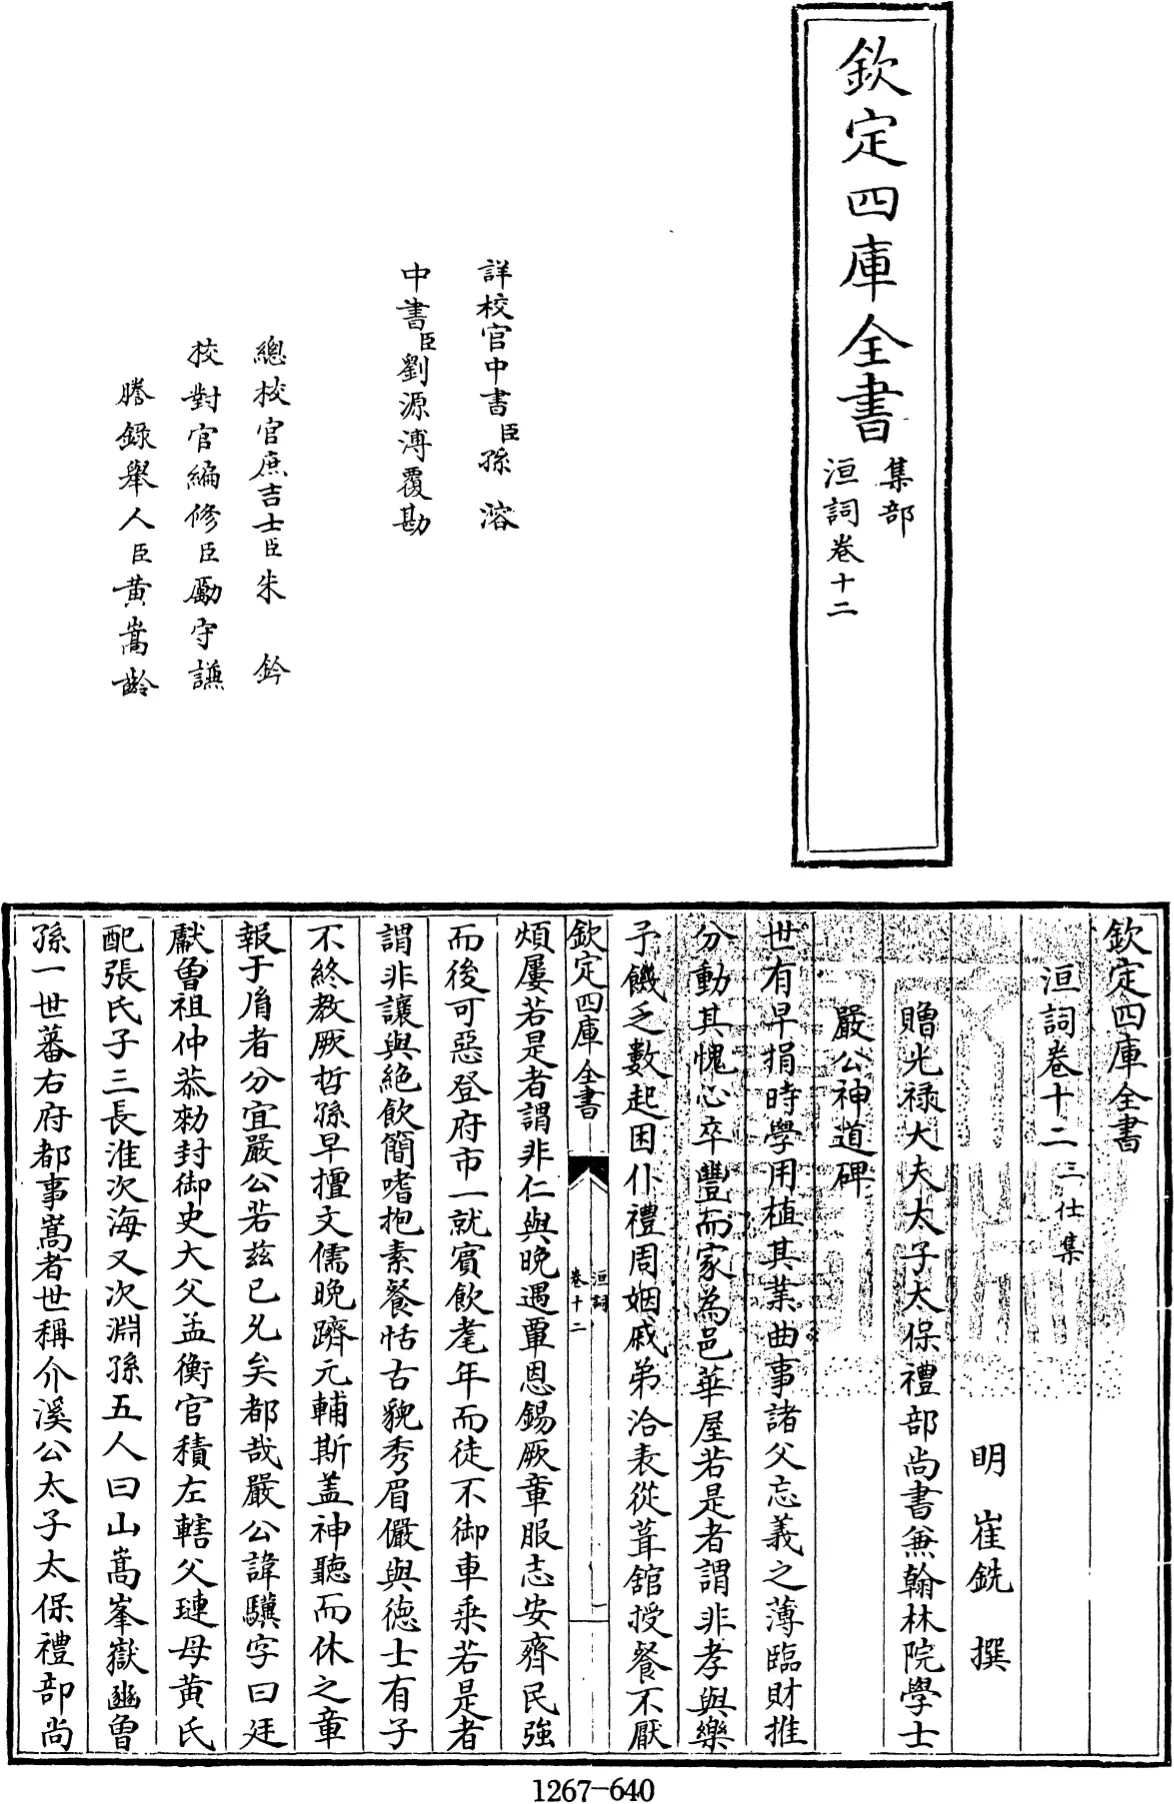 欽定四庫全書
集部
洹詞卷十二
詳校官中書臣孫溶
中書臣劉源溥覆勘
總校官庶吉士臣朱鈐
校對官編修臣勵守謙
謄錄舉人臣黃嵩齡
欽定四庫全書
洹詞卷十二 三仕集
明 崔銑 撰
贈光祿大夫太子太保禮部尚書兼翰林院學士
嚴公神道碑
世有早捐時學用植其業曲事諸父忘義之薄臨財推
分動其愧心卒豐而家為邑華屋若是者謂非孝與樂
予饑乏數起困仆禮周姻戚弟洽表從葺舘授餐不厭
煩屢若是者謂非仁與晚遇覃恩錫厥章服志安齊民強
而後可惡登府市一就賓飲耄年而徒不御車乘若是者
謂非讓與絕飲簡嗜抱素餐恬古貌秀眉儼與德士有子
不終教厥哲孫早擅文儒晚躋元輔斯盖神聽而休之章
報于胥者分宜嚴公若兹已允矣都哉嚴公諱驥字曰廷
獻曾祖仲恭勑封御史大父孟衡官積左轄父璉母黃氏
配張氏子三長淮次海又次淵孫五人曰山嵩峯嶽豳曾
孫一世蕃右府都事嵩者世稱介溪公太子太保禮部尚
欽定四庫全書
洹詞
卷十二
一
1267-640